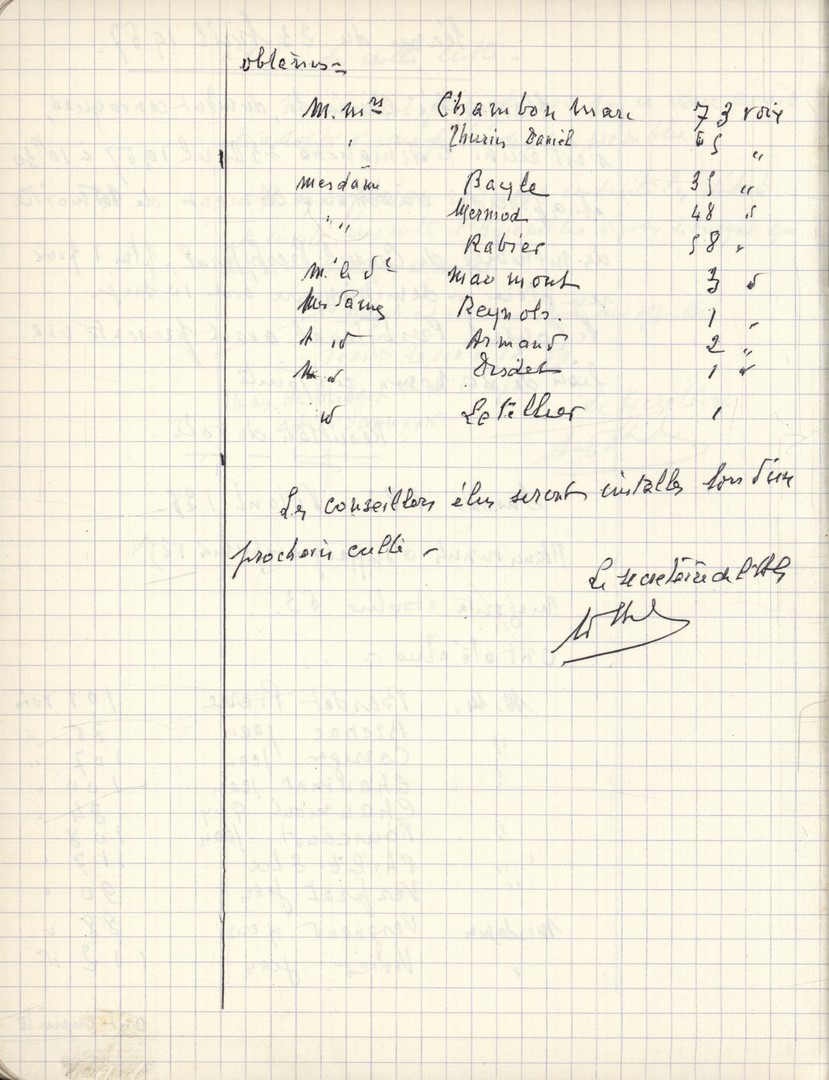 obtenus =
M. mrs Chambon Marc 73 voix
" Thurin Daniel 55 "
mesdame Bayle 35 "
" " Mermod 48 "
" Rabier 58 "
M. le Marmont 3 "
Mesdames Reynols. 1 "
Armand 2 "
Disdet 1 "
id Letellier 1
Les conseillers élus seront installés lors d'un
prochain culte -
Le secrétaire de l'Ab